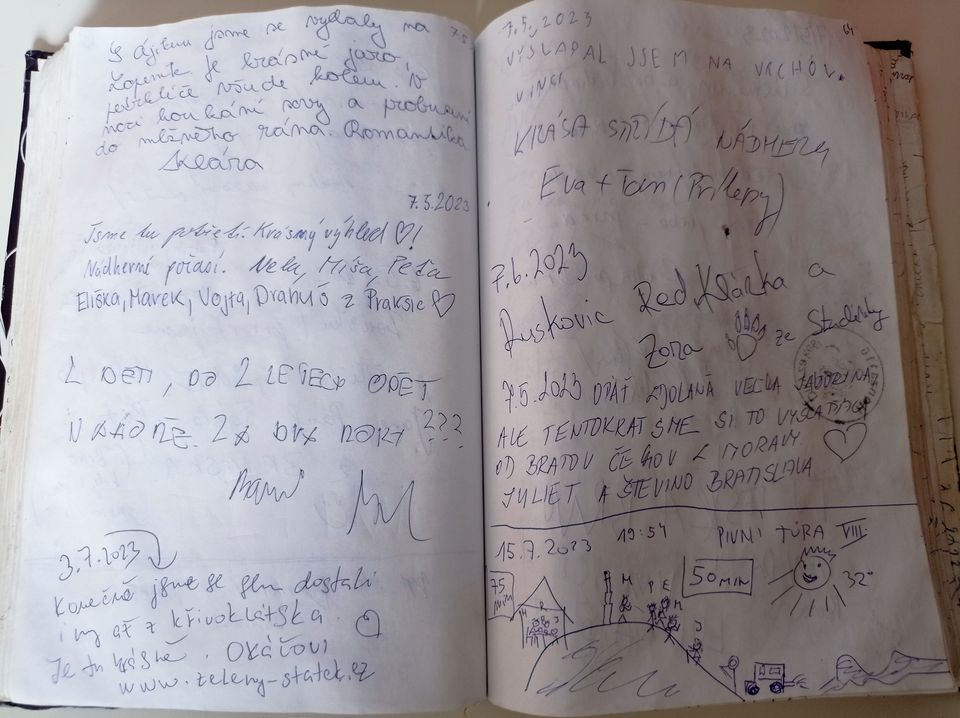 S Ájinu jsme se vydaly na
Lopeník je krásné jaro,
petrklíče všude kolem. V
noci houkání sovy a probuzení
do mlžného rána. Romantika
Klára
7.5
7.5.2023
Jsme tu potřetí. Krásný výhled ♡!
Nádherné počasí. Nela, Míša, Péťa
Eliška, Marek, Vojta, Drahuš z Prakšic ♡
2 DĚTI, DO 2 LETECH OPĚT
2X DVA ROKY ???
3.7.2023
Konečně jsme se sem dostali
i my až z křivoklátska.
Je tu krásně. OKÁČOVI
www.zeleny-statek.cz
7.5.2023
VYŠLAPAL JSEM NA VRCHOV.
KRÁSA STŘÍDÁ NÁDHERU
Eva + Tom (Přílepy)
7.6.2023
Ruskovic Rad, Klárka a
Zora ze Studenky
7.5.2023 OPÄŤ ZDOLANÁ VEĽKÁ JAVORINA
ALE TENTOKRÁT SME SI TO VYŠLAPALI
OD BRATOV ČECHOV Z MORAVY
JULIET A ŠTEVINO BRATISLAVA
15.7.2023 19:54 PIVNÍ TÚRA VIII
75 MIN
50 MIN
32°